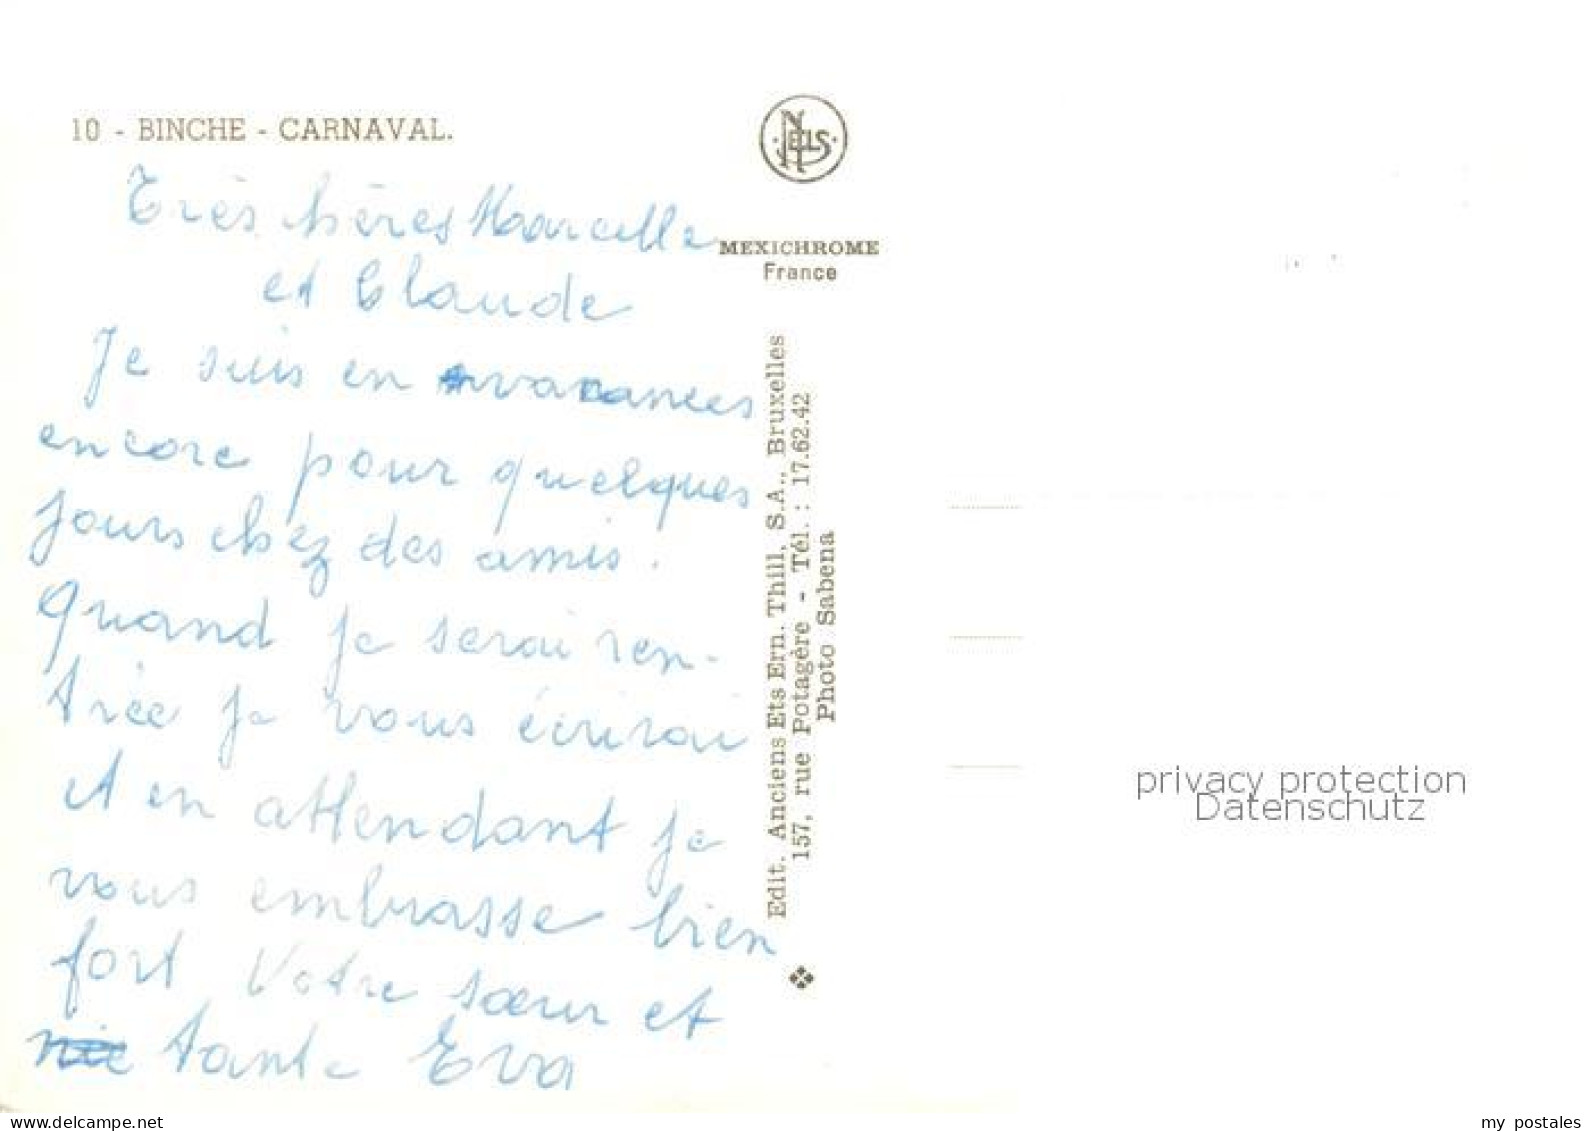 10 - BINCHE - CARNAVAL.
NELS
MEXICHROME
France
Très chères Marcelle
et Claude
Je suis en vacances
encore pour quelques
jours chez des amis.
Quand je serai ren-
trée je vous écrirai
et en attendant je
vous embrasse bien
fort Votre sœur et
tante Eva
Edit. Anciens Ets Ern. Thill, S.A., Bruxelles
157, rue Potagère - Tél. : 17.62.42
Photo Sabena
privacy protection
Datenschutz
www.delcampe.net
my_postales